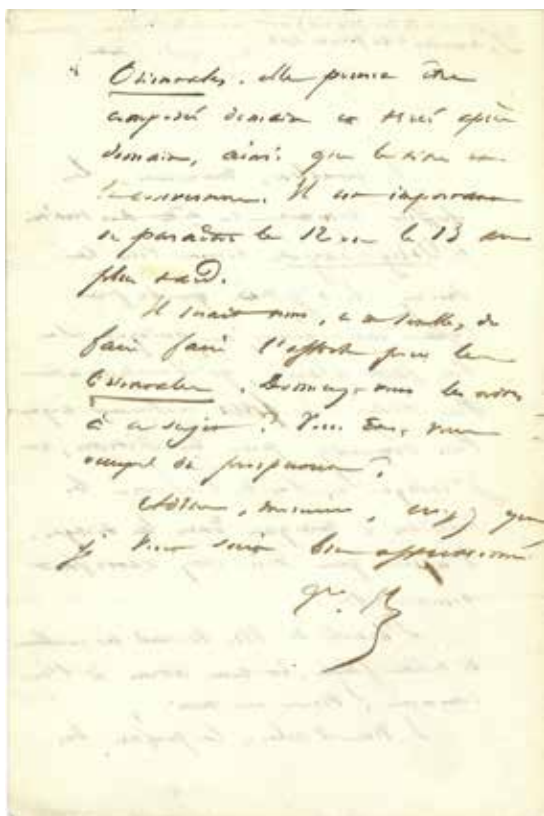 Orientales. elle pourra être
composée demain et tirée après
demain, ainsi que le titre et
la couverture. Il est important
de paraître le 12 ou le 13 au
plus tard.
Il serait tems, ce me semble, de
faire faire l'affiche pour les
Orientales. Donnez-vous les ordres
à ce sujet? Vous êtes-vous
occupé du prospectus?
Adieu, monsieur, croyez que
je vous suis bien affectionné
Vr. H